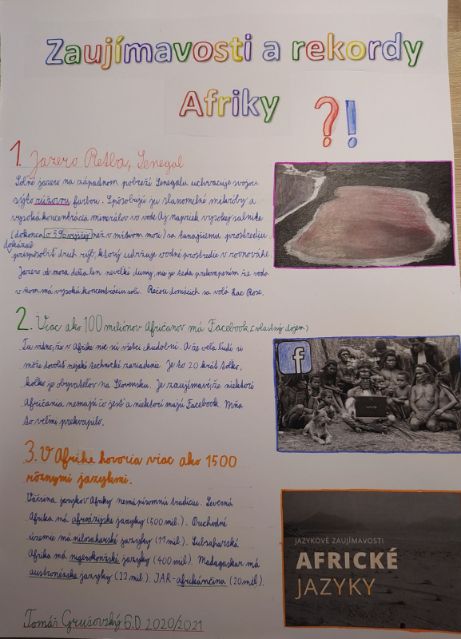 Zaujímavosti a rekordy
Afriky ?!
1. Jazero Retba, Senegal
Soľné jazero na západnom pobreží Senegalu uchvacuje svojou
sýto ružovou farbou. Spôsobujú ju slanomilné mikróby a
vysoká koncentrácia minerálov vo vode. Aj napriek vysokej salinite
(dokonca o 3% vyššej než v mŕtvom mori) sa tunajšiemu prostrediu
dokázal
prispôsobiť druh rýb, ktorý udržuje vodné prostredie v rovnováhe.
Jazero od mora delia len neveľké duny, nie je teda prekvapením že voda
v ňom má vysokú koncentráciu soli. Rečou domácich sa volá Lac Rose.
2. Viac ako 100 miliónov Afričanov má Facebook (vlastný dojem)
Tu vidno, že v Afrike nie sú všetci chudobní. A že veľa ľudí si
môže dovoliť nejaké technické zariadenia. Je to 20 krát toľko,
koľko je obyvateľov na Slovensku. Je zaujímavé, že niektorí
Afričania nemajú čo jesť a niektorí majú Facebook. Mňa
to veľmi prekvapilo.
f
3. V Afrike hovoria viac ako 1500
rôznymi jazykmi.
Väčšina jazykov Afriky nemá písomnú tradíciu. Severná
Afrika má afroázijské jazyky (500 mil.). Východné
územie má nilosaharské jazyky (11 mil.). Subsaharská
Afrika má nigerokonžské jazyky (400 mil.). Madagaskar má
austronézske jazyky (22 mil.). JAR-afrikánčina (20 mil.).
JAZYKOVÉ ZAUJÍMAVOSTI
AFRICKÉ
JAZYKY
Tomáš Grušovský 6.D 2020/2021